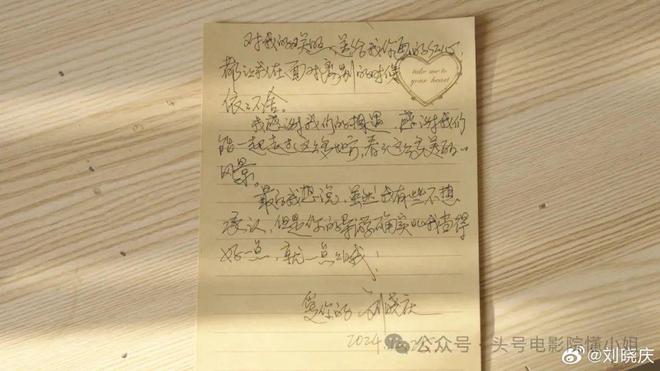 对我的关照，送给我你画的红心，
都让我在面对离别的时候
依依不舍。
take me to
your heart
我感谢我们的相遇，感谢我们
能一起走过这么多地方，看过这么多美丽的
风景。
最后我想说，虽然我有些不想
承认，但是你的导游确实比我当得
好一点，就一点点哦！
爱你的 刘晓庆
2024
公众号·头号电影院懂小姐
@刘晓庆